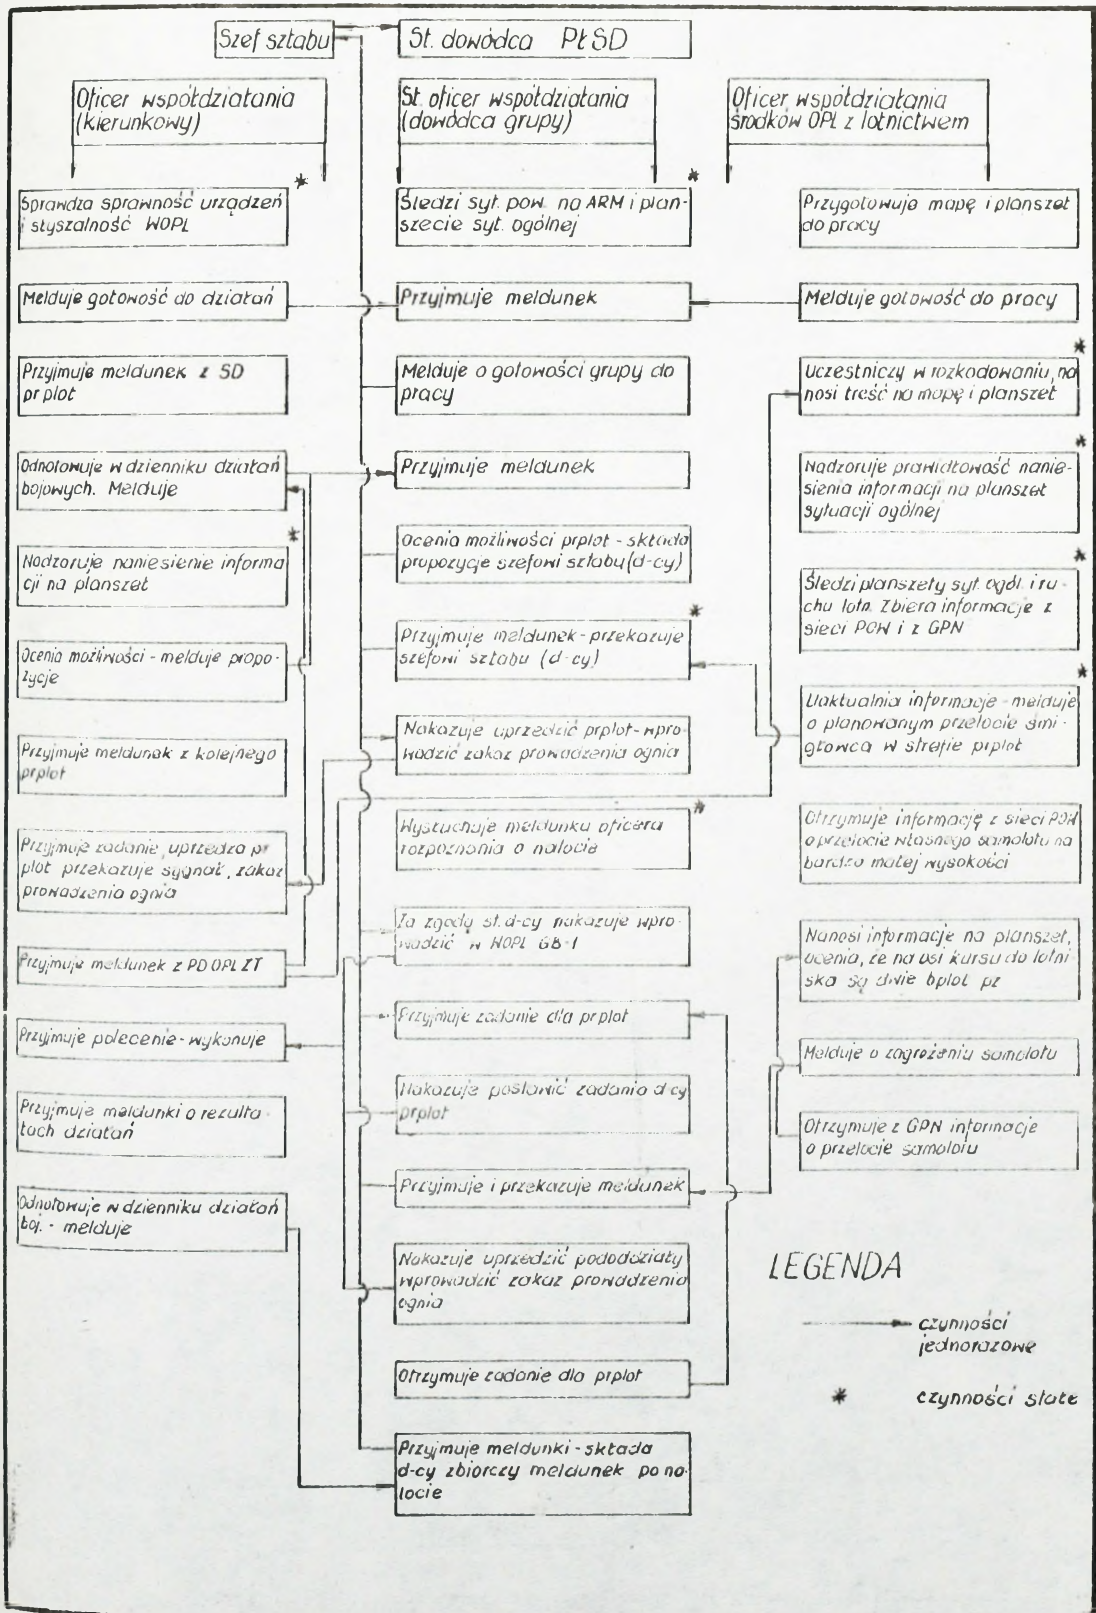 Szef sztabu
St. dowódca PŁSD
Oficer współdziałania
(kierunkowy)
St. oficer współdziałania
(dowódca grupy)
Oficer współdziałania
środków OPL z lotnictwem
*
Sprawdza sprawność urządzeń
i słyszalność WOPL
Melduje gotowość do działań
Przyjmuje meldunek z SD
pr plot
Odnotowuje w dzienniku działań
bojowych. Melduje
*
Nadzoruje naniesienie informa
cji na planszet
Ocenia możliwości - melduje propo-
zycje
Przyjmuje meldunek z kolejnego
prplot
Przyjmuje zadanie, uprzedza pr
plot przekazuje sygnał, zakaz
prowadzenia ognia
Przyjmuje meldunek z PD OPL ZT
Przyjmuje polecenie - wykonuje
Przyjmuje meldunki o rezulta-
tach działań
Odnotowuje w dzienniku działań
boj. - melduje
*
Śledzi syt. pow. na ARM i plan-
szecie syt. ogólnej
Przyjmuje meldunek
Melduje o gotowości grupy do
pracy
Przyjmuje meldunek
Ocenia możliwości prplot - składa
propozycje szefowi sztabu (d-cy)
*
Przyjmuje meldunek - przekazuje
szefowi sztabu (d-cy)
Nakazuje uprzedzić prplot - wpro-
wadzić zakaz prowadzenia ognia
*
Wysłuchuje meldunku oficera
rozpoznania o nalocie
Za zgodą st. d-cy nakazuje wpro-
wadzić w WOPL GB-1
Przyjmuje zadanie dla prplot
Nakazuje postawić zadania d-cy
prplot
Przyjmuje i przekazuje meldunek
Nakazuje uprzedzić pododdziały
wprowadzić zakaz prowadzenia
ognia
Otrzymuje zadanie dla prplot
Przyjmuje meldunki - składa
d-cy zbiorczy meldunek po na-
locie
Przygotowuje mapę i planszet
do pracy
Melduje gotowość do pracy
*
Uczestniczy w rozkodowaniu, na
nosi treść na mapę i planszet
*
Nadzoruje prawidłowość nanie-
sienia informacji na planszet
sytuacji ogólnej
*
Śledzi planszety syt. ogól. i ru-
chu lotn. Zbiera informacje z
sieci POW i z GPN
*
Uaktualnia informacje - melduje
o planowanym przelocie śmi-
głowca w strefie prplot
Otrzymuje informację z sieci POW
o przelocie własnego samolotu na
bardzo małej wysokości
Nanosi informacje na planszet,
ocenia, że na osi kursu do lotni
ska są dwie bplot pz
Melduje o zagrożeniu samolotu
Otrzymuje z GPN informacje
o przelocie samolotu
LEGENDA
czynności
jednorazowe
* czynności stałe